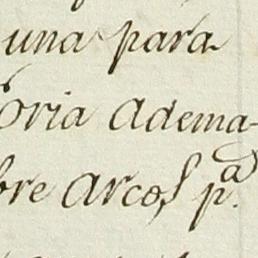 una para
oria adema-
bre arcos p.ª